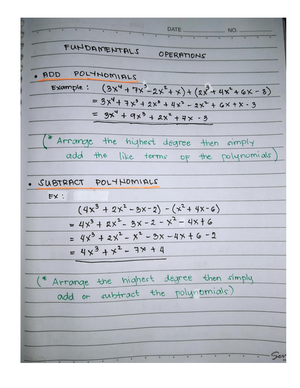 DATE NO.
FUNDAMENTALS OPERATIONS
• ADD POLYNOMIALS
Example : (3x⁴ + 7x³ - 2x² + x) + (2x³ + 4x² + 6x - 3)
= 3x⁴ + 7x³ + 2x³ + 4x² - 2x² + 6x + x - 3
= 3x⁴ + 9x³ + 2x² + 7x - 3
(* Arrange the highest degree then simply
add the like terms of the polynomials)
• SUBTRACT POLYNOMIALS
EX :
(4x³ + 2x² - 3x - 2) - (x² + 4x - 6)
= 4x³ + 2x² - 3x - 2 - x² - 4x + 6
= 4x³ + 2x² - x² - 3x - 4x + 6 - 2
= 4x³ + x² - 7x + 4
(* Arrange the highest degree then simply
add or subtract the polynomials)